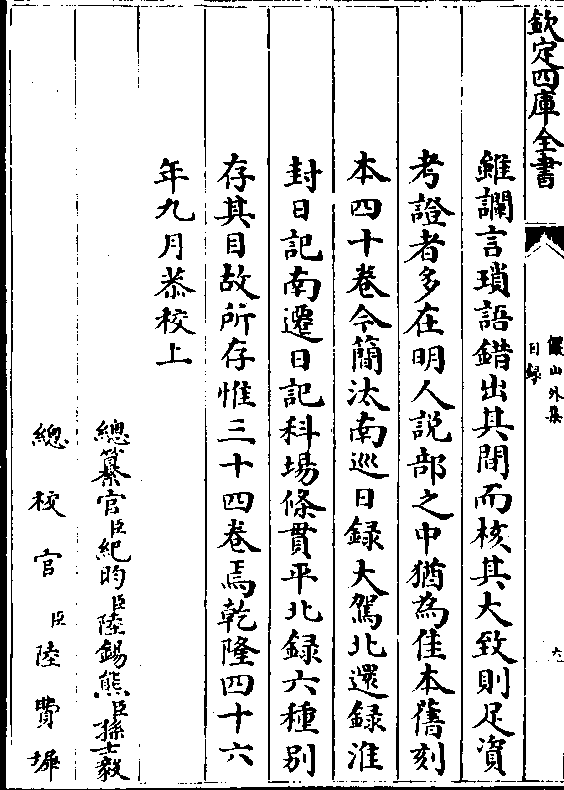 欽定四庫全書
儼山外集
目錄
六
雖讕言瑣語錯出其間而核其大致則足資
考證者多在明人說部之中猶為佳本舊刻
本四十卷今簡汰南巡日録大駕北還録淮
封日記南遷日記科場條貫平北録六種別
存其目故所存惟三十四卷焉乾隆四十六
年九月恭校上
總纂官臣紀昀臣陸錫熊臣孫士毅
總校官臣陸費墀